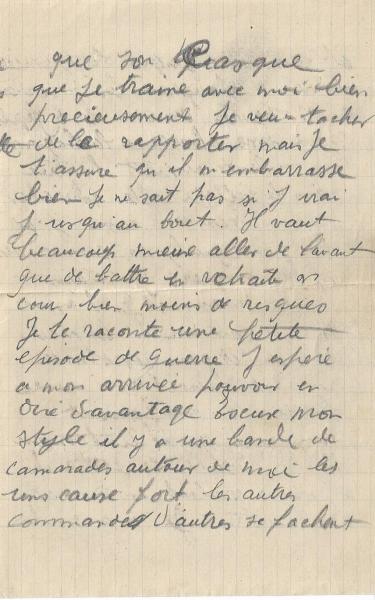 que son Casque
que je traine avec moi bien
precieusement Je veu tacher
de le rapporter mais Je
t'assure qu'il m'embarrasse
bien Je ne sait pas si J'irai
Jusqu'au bout. Il vaut
beaucoup mieux aller de lavant
que de battre en retraite on
cour bien moins de risques
Je te raconte une petite
episode de Guerre J'espere
a mon arrivée pouvoir en
dire davantage Escuse mon
style il y a une bande de
camarades autour de moi les
uns cause fort les autres
commandes d'autres se fachent